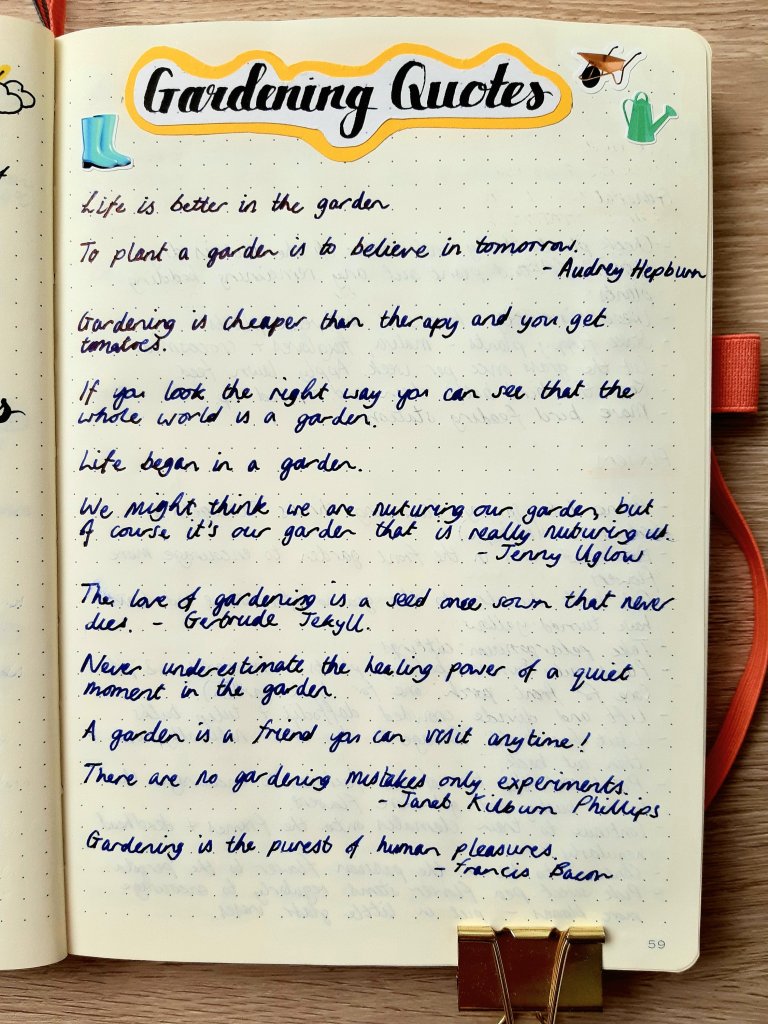 Gardening Quotes
Life is better in the garden
To plant a garden is to believe in tomorrow.
- Audrey Hepburn
Gardening is cheaper than therapy and you get
tomatoes.
If you look the right way you can see that the
whole world is a garden.
Life began in a garden.
We might think we are nuturing our garden, but
of course it's our garden that is really nuturing us.
- Jenny Uglow
The love of gardening is a seed once sown that never
dies. - Gertrude Jekyll.
Never underestimate the healing power of a quiet
moment in the garden.
A garden is a friend you can visit anytime!
There are no gardening mistakes only experiments.
- Janet Kilburn Phillips
Gardening is the purest of human pleasures.
- Francis Bacon
59